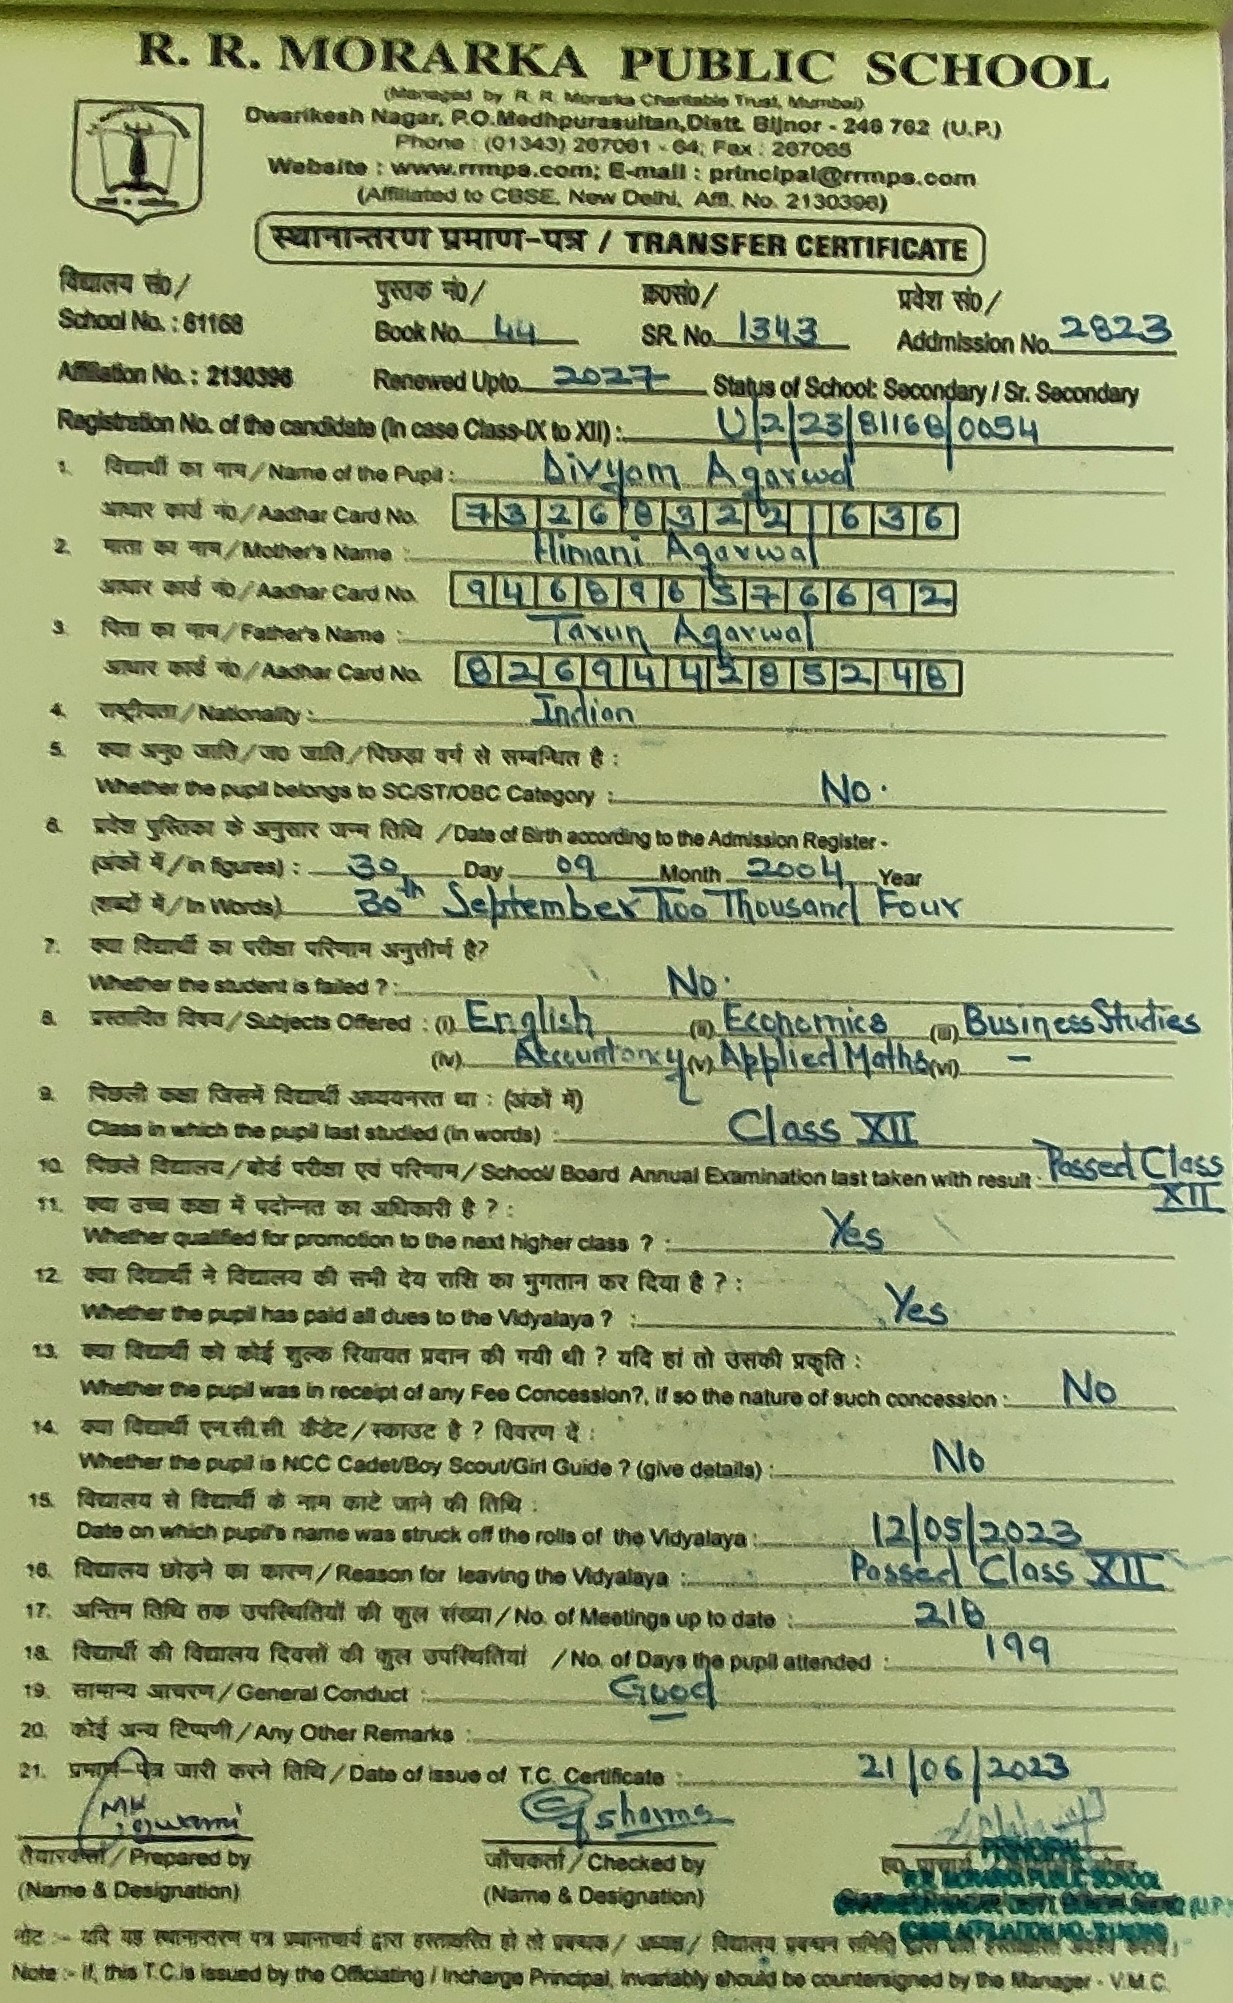 R. R. MORARKA PUBLIC SCHOOL
(Managed by R. R. Morarka Charitable Trust, Mumbai)
Dwarikesh Nagar, P.O.Medhpurasultan,Distt. Bijnor - 246 762 (U.P.)
Phone : (01343) 267061 - 64; Fax : 267065
Website : www.rrmps.com; E-mail : principal@rrmps.com
(Affiliated to CBSE, New Delhi, Affl. No. 2130396)
स्थानान्तरण प्रमाण-पत्र / TRANSFER CERTIFICATE
विद्यालय सं0/ पुस्तक नं0/ क्र0सं0/ प्रवेश सं0/
School No. : 81168 Book No. 44 SR. No. 1343 Addmission No. 2823
Affiliation No. : 2130396 Renewed Upto. 2027 Status of School: Secondary / Sr. Secondary
Registration No. of the candidate (in case Class-IX to XII) : U/2/23/81168/0054
1. विद्यार्थी का नाम/Name of the Pupil : Divyam Agarwal
आधार कार्ड नं0/Aadhar Card No. 7 3 2 6 8 3 2 2 1 6 3 6
2. माता का नाम/Mother's Name : Himani Agarwal
आधार कार्ड नं0/Aadhar Card No. 9 4 6 8 9 6 5 7 6 6 9 2
3. पिता का नाम/Father's Name : Tarun Agarwal
आधार कार्ड नं0/Aadhar Card No. 8 2 6 9 4 4 2 8 5 2 4 8
4. राष्ट्रीयता/Nationality : Indian
5. क्या अनु0 जाति/ज0 जाति/पिछड़ा वर्ग से सम्बन्धित है :
Whether the pupil belongs to SC/ST/OBC Category : No.
6. प्रवेश पुस्तिका के अनुसार जन्म तिथि /Date of Birth according to the Admission Register -
(अंकों में/in figures) : 30 Day 09 Month 2004 Year
(शब्दों में/In Words) 30th September Two Thousand Four
7. क्या विद्यार्थी का परीक्षा परिणाम अनुत्तीर्ण है?
Whether the student is failed ? : No.
8. प्रस्तावित विषय/Subjects Offered : (i) English (ii) Economics (iii) Business Studies
(iv) Accountancy (v) Applied Maths (vi) –
9. पिछली कक्षा जिसमें विद्यार्थी अध्ययनरत था : (अंकों में)
Class in which the pupil last studied (in words) : Class XII
10. पिछले विद्यालय/बोर्ड परीक्षा एवं परिणाम/School/ Board Annual Examination last taken with result : Passed Class XII
11. क्या उच्च कक्षा में पदोन्नत का अधिकारी है ? :
Whether qualified for promotion to the next higher class ? : Yes
12. क्या विद्यार्थी ने विद्यालय की सभी देय राशि का भुगतान कर दिया है ? :
Whether the pupil has paid all dues to the Vidyalaya ? : Yes
13. क्या विद्यार्थी को कोई शुल्क रियायत प्रदान की गयी थी ? यदि हां तो उसकी प्रकृति :
Whether the pupil was in receipt of any Fee Concession?, if so the nature of such concession : No
14. क्या विद्यार्थी एन.सी.सी. कैडेट/स्काउट है ? विवरण दें :
Whether the pupil is NCC Cadet/Boy Scout/Girl Guide ? (give details) : No
15. विद्यालय से विद्यार्थी के नाम काटे जाने की तिथि :
Date on which pupil's name was struck off the rolls of the Vidyalaya : 12/05/2023
16. विद्यालय छोड़ने का कारण/Reason for leaving the Vidyalaya : Passed Class XII
17. अन्तिम तिथि तक उपस्थितियों की कुल संख्या/No. of Meetings up to date : 218
18. विद्यार्थी की विद्यालय दिवसों की कुल उपस्थितियां /No. of Days the pupil attended : 199
19. सामान्य आचरण/General Conduct : Good
20. कोई अन्य टिप्पणी/Any Other Remarks :
21. प्रमाण-पत्र जारी करने तिथि/Date of issue of T.C. Certificate : 21/06/2023
तैयारकर्त्ता/Prepared by जाँचकर्ता/Checked by
(Name & Designation) (Name & Designation)
PRINCIPAL
R.R. MORARKA PUBLIC SCHOOL
नोट :- यदि यह स्थानान्तरण पत्र प्रधानाचार्य द्वारा हस्ताक्षरित हो तो प्रबन्धक/ अध्यक्ष/ विद्यालय प्रबन्धन समिति
Note :- If, this T.C.is issued by the Officiating / Incharge Principal, invariably should be countersigned by the Manager - V.M.C.